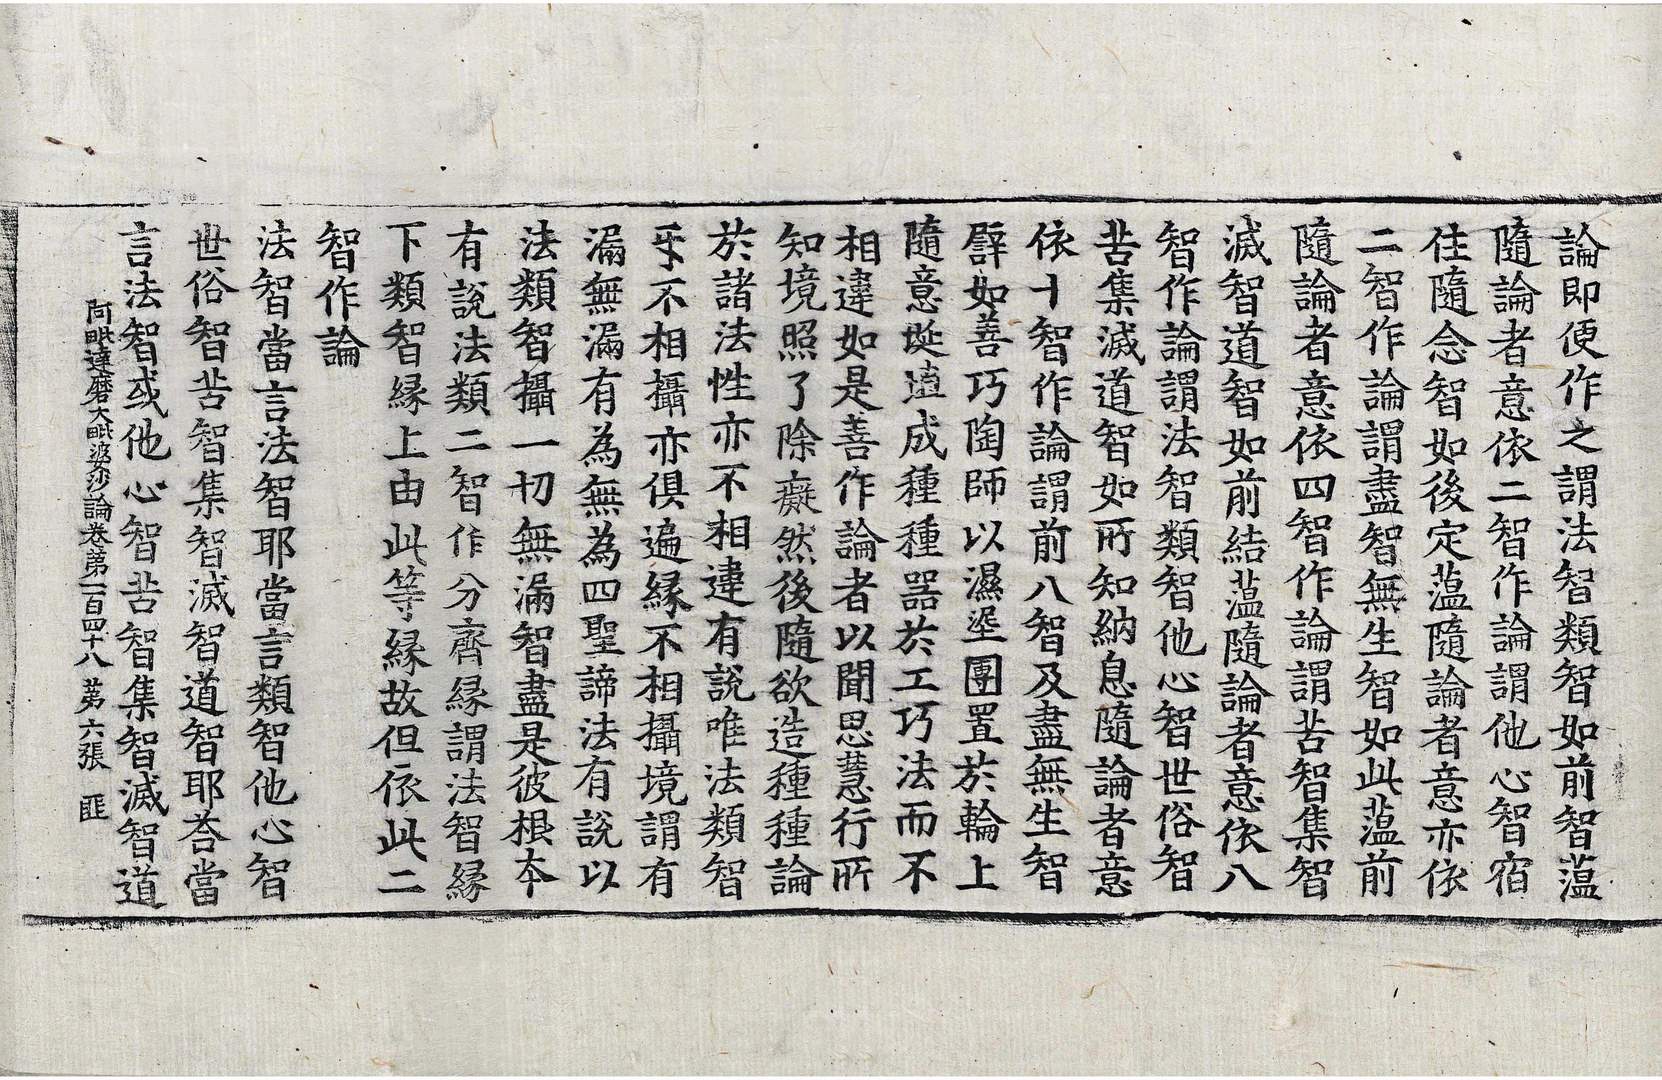 論即便作之謂法智類智如前智蘊
隨論者意依二智作論謂他心智宿
住隨念智如後定蘊隨論者意亦依
二智作論謂盡智無生智如此蘊前
隨論者意依四智作論謂苦智集智
滅智道智如前結蘊隨論者意依八
智作論謂法智類智他心智世俗智
苦集滅道智如所知納息隨論者意
依十智作論謂前八智及盡無生智
譬如善巧陶師以濕埿團置於輪上
隨意埏埴成種種器於工巧法而不
相違如是善作論者以聞思慧行所
知境照了除癡然後隨欲造種種論
於諸法性亦不相違有說唯法類智
㸦不相攝亦俱遍緣不相攝境謂有
漏無漏有為無為四聖諦法有說以
法類智攝一切無漏智盡是彼根本
有說法類二智作分齊緣謂法智緣
下類智緣上由此等緣故但依此二
智作論
法智當言法智耶當言類智他心智
世俗智苦智集智滅智道智耶荅當
言法智或他心智苦智集智滅智道
阿毗達磨大毗婆沙論卷苐一百四十八 苐六張 匪